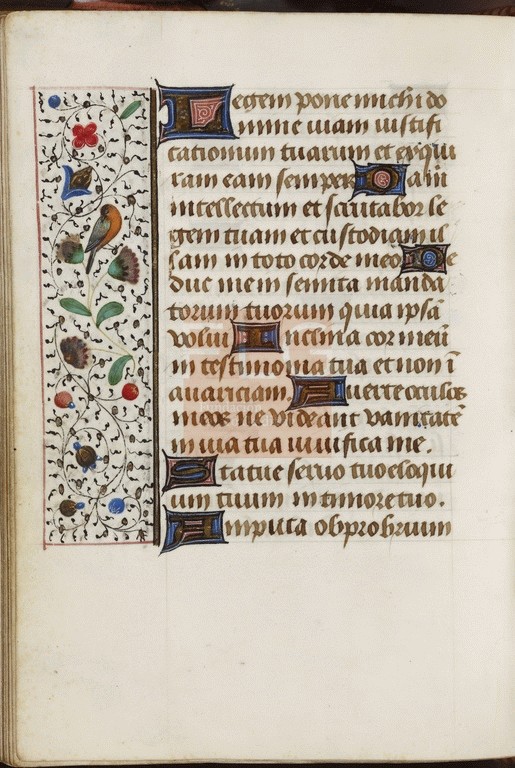 Legem pone michi do
mine uiam iustifi
cationum tuarum et exqui
ram eam semper Da m̄
intellectum et scrutabor le
gem tuam et custodiam il
lam in toto corde meo De
duc me in semita manda
torum tuorum quia ipsā
volui Inclina cor meū
in testimonia tua et non ī
auariciam. Auerte oculos
meos ne videant vanitatē
in uia tua uiuifica me.
Statue seruo tuo eloqui
um tuum in timore tuo.
Amputa obprobrium